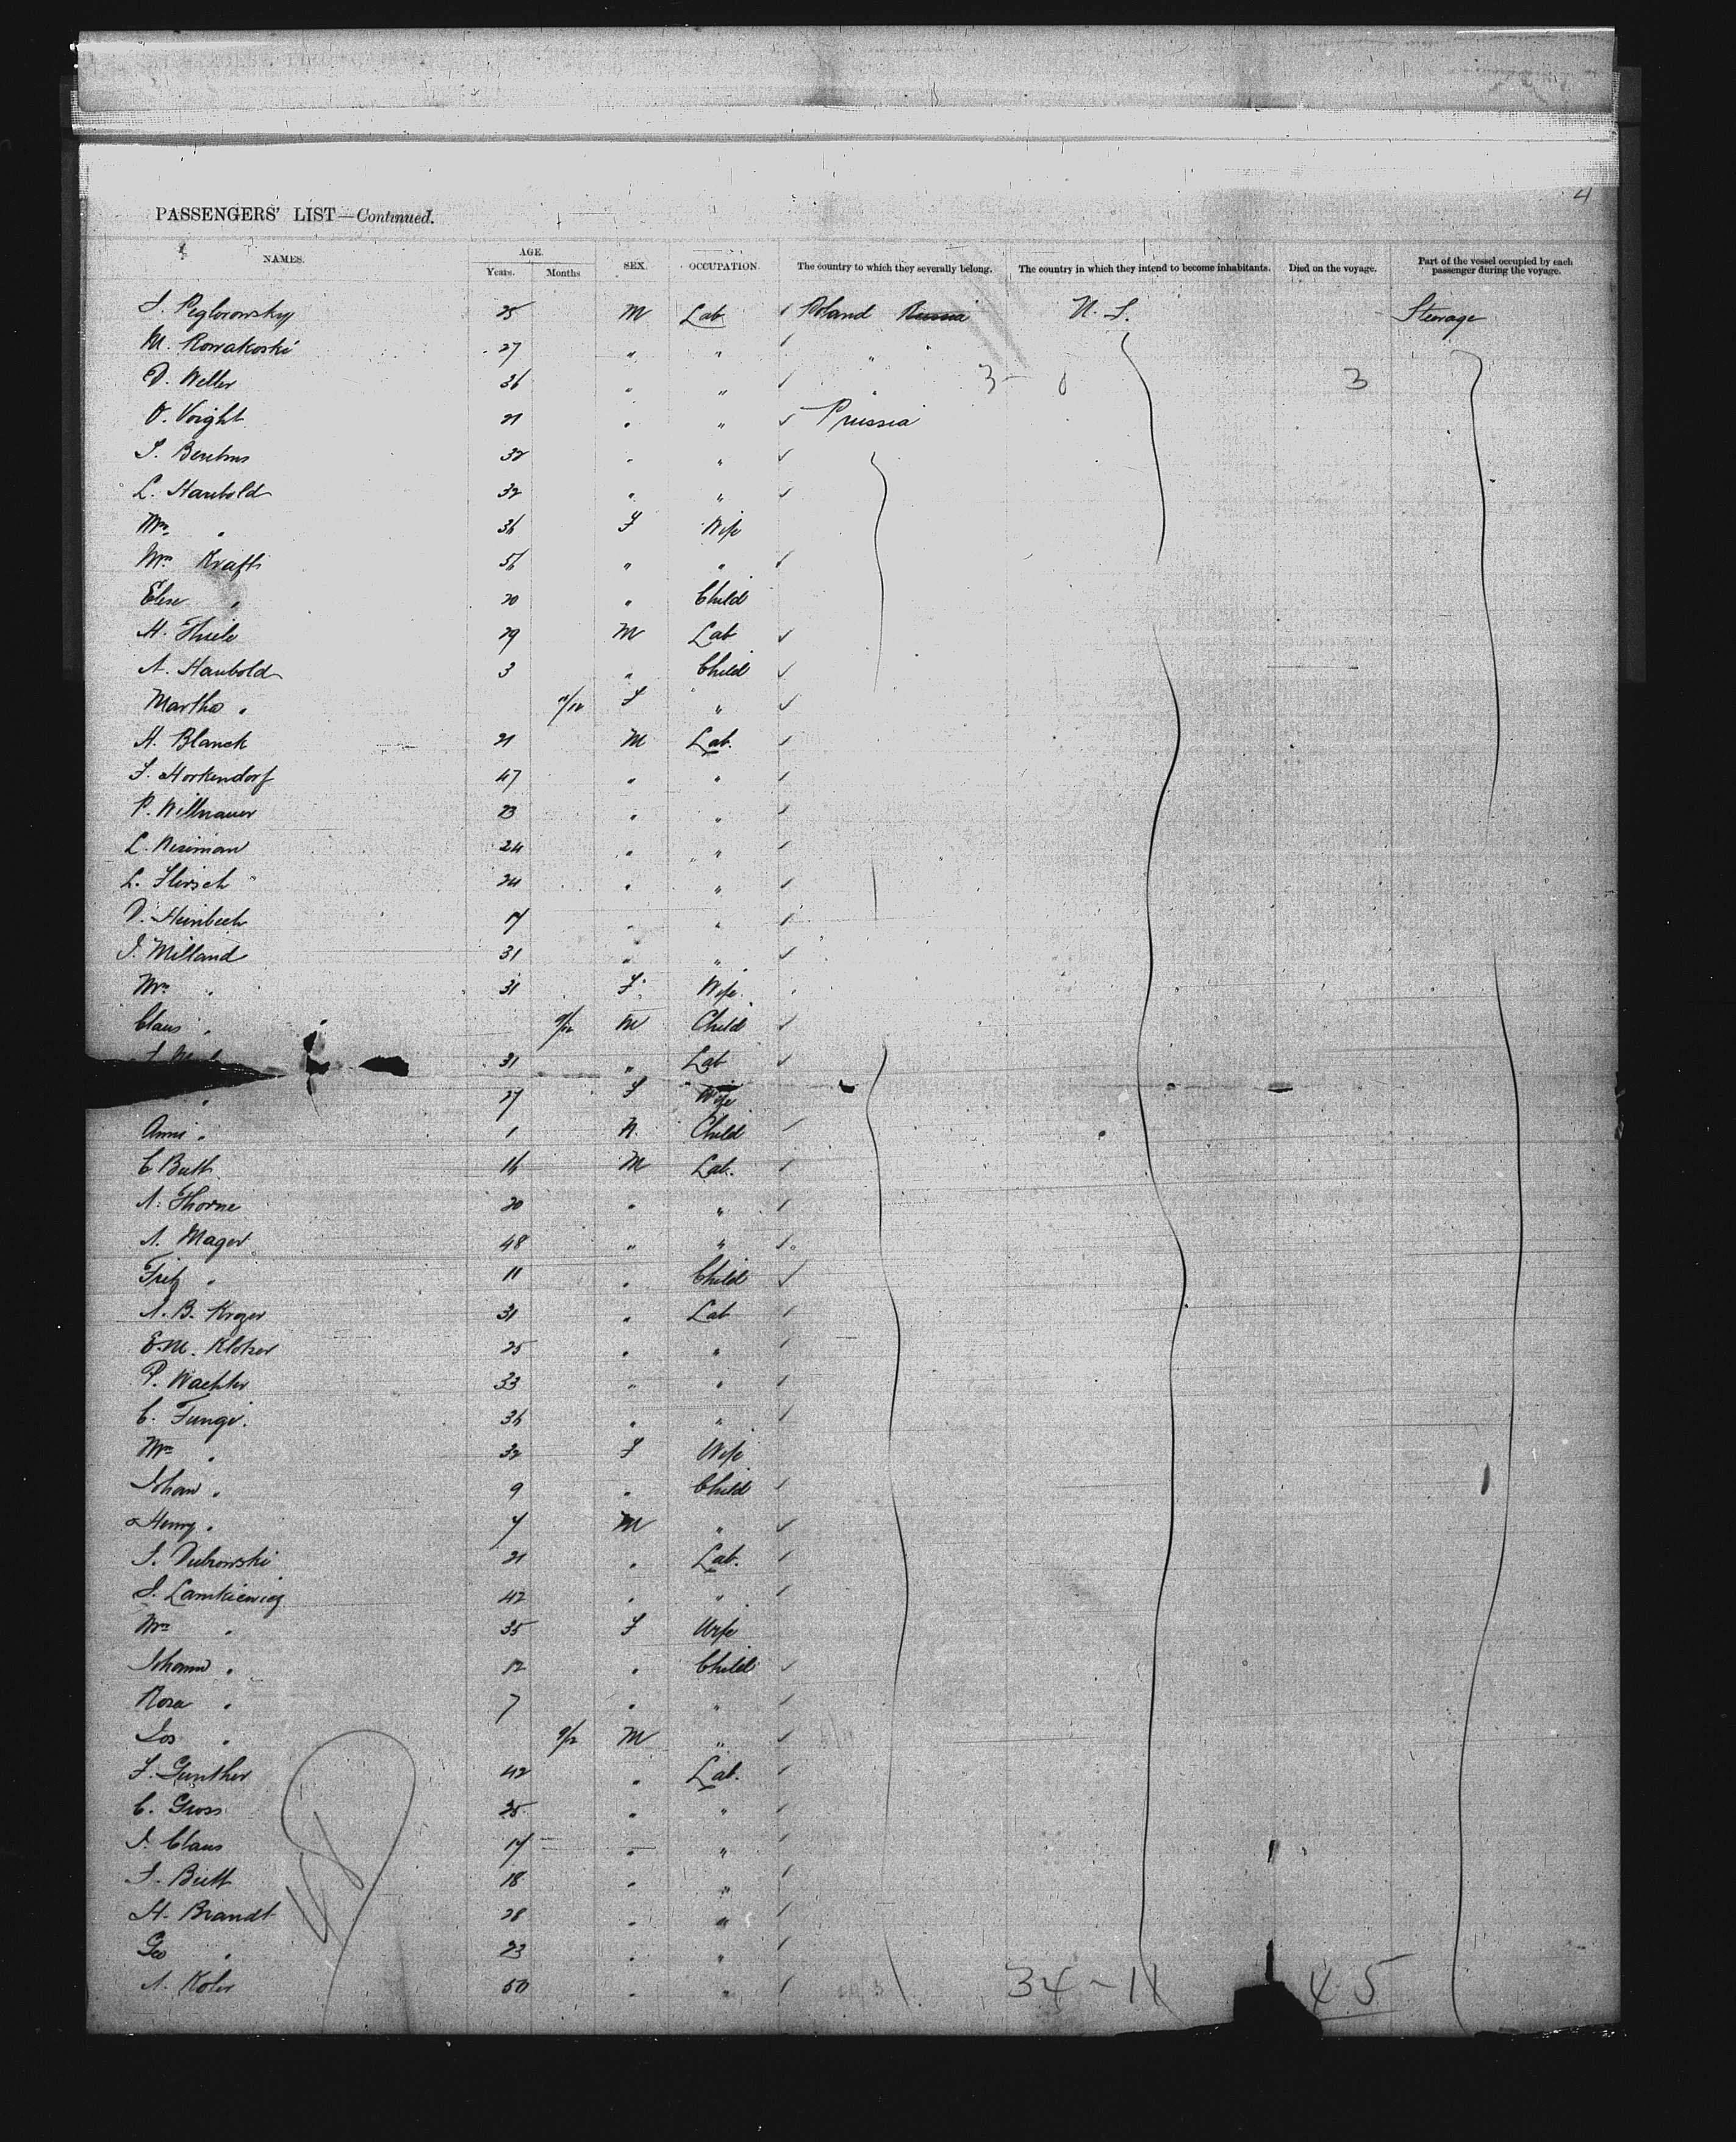 4
PASSENGERS' LIST—Continued.
NAMES. AGE. Years. Months SEX. OCCUPATION. The country to which they severally belong. The country in which they intend to become inhabitants. Died on the voyage. Part of the vessel occupied by each passenger during the voyage.
25 M Lab Poland Russia U. S. Steerage
M. Rowakoski 27 " " " "
D. Weller 36 " " " 3 - 0 3
O. Voight 21 " " Prussia
32 " "
L. Haubold 32 " "
Mrs " 36 F Wife
Mrs Kraft 56 " "
Elise " 20 " Child
H. Thiele 29 M Lab
A. Haubold 3 " Child
Martha " 11/12 F "
H. Blanck 21 M Lab.
F. Horkendorf 47 " "
P. Willnauer 23 " "
L. Wisiman 24 " "
L. Hirsch 24 " "
D. Heinbech 17 " "
J. Milland 31 " "
Mrs " 31 F Wife
Claus " 9/12 M Child
31 " Lab
" 27 F Wife
Anni " 1 Child
C. Butt 16 M Lab.
A. Thorne 20 " "
A. Mager 48 " "
Fritz " 11 " Child
A. B. Kroger 31 " Lab
E. M. Klotzer 25 " "
P. Wachter 33 " "
C. Funge. 36 " "
Mrs " 32 F Wife
Johan " 9 " Child
Henry " 7 M "
S. Dubrowski 21 " Lab.
S. Lamkiewicz 42 " "
Mrs " 35 F Wife
Johann " 12 " Child
Rosa " 7 " "
Jos " 9/12 M "
F. Gunther 42 " Lab.
C. Gross 25 " "
J. Claus 17 " "
F. Butt 18 " "
H. Brandt 28 " "
Geo " 23 " "
A. Kohr 50 " " 34 - 11 45